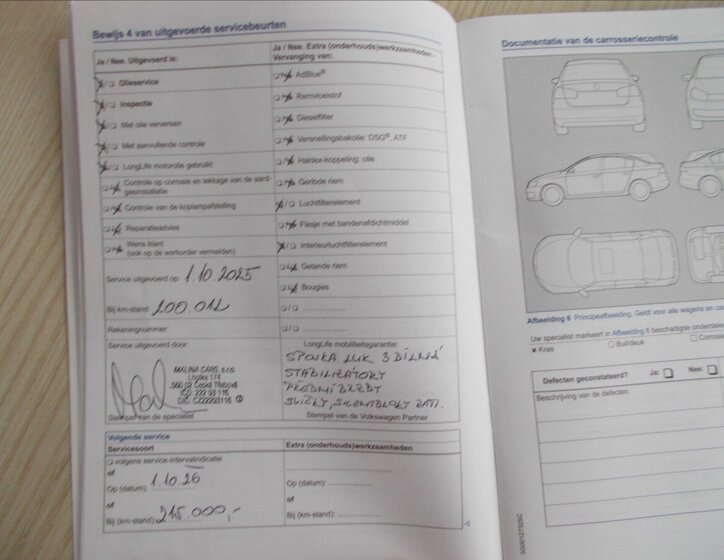 Bewijs 4 van uitgevoerde servicebeurten
Ja / Nee. Uitgevoerd is:
Olieservice
Inspectie
Met olie verversen
Met aanvullende controle
LongLife motorolie gebruikt
Controle op corrosie en lekkage van de aard-
gasinstallatie
Controle van de koplampafstelling
Reparatieadvies
Wens klant
(ook op de werkorder vermelden)
Service uitgevoerd op: 1.10.2025
Bij km-stand: 200.012
Rekeningnummer:
Service uitgevoerd door:
MALINA CARS, s.r.o.
560 02 Česká Třebová
IČO: 222 93 116
DIČ: CZ22293116
Stempel van de specialist
Ja / Nee. Extra (onderhouds)werkzaamheden -
Vervanging van:
AdBlue®
Remvloeistof
Dieselfilter
Versnellingsbakolie: DSG®, ATF
Haldex-koppeling: olie
Geribde riem
Luchtfilterelement
Flesje met bandenafdichtmiddel
Interieurluchtfilterelement
Getande riem
Bougies
LongLife mobiliteitsgarantie:
SPOJKA LUK 3 DÍLNÁ
STABILIZÁTORY
PŘEDNÍ BRZDY
SVÍČKY, SILENTBLOKY
Stempel van de Volkswagen Partner
Volgende service
Servicesoort
volgens service-intervalindicatie
of
Op (datum): 1.10.26
of
Bij (km-stand): 215.000,-
Extra (onderhouds)werkzaamheden
Op (datum):
of
Bij (km-stand):
Documentatie van de carrosseriecontrole
Afbeelding 6 Principeafbeelding. Geldt voor alle wagens en
Uw specialist markeert in Afbeelding 6 beschadigde onderdelen
x Kras
Buil/deuk
Corrosie
Defecten geconstateerd? Ja: Nee:
Beschrijving van de defecten: